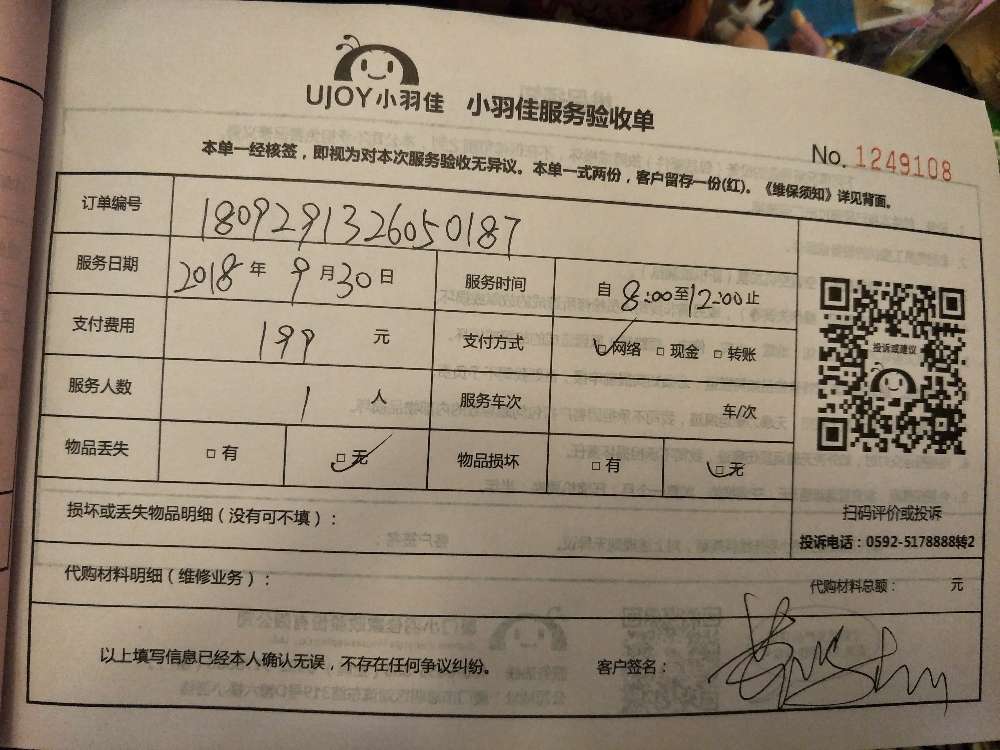 UJOY小羽佳 小羽佳服务验收单
No. 1249108
本单一经核签，即视为对本次服务验收无异议。本单一式两份，客户留存一份(红)。《维保须知》详见背面。
订单编号 180929132605​0187
服务日期 2018年9月30日 服务时间 自8:00至12:00止
支付费用 199元 支付方式 ☑网络 □现金 □转账
服务人数 1人 服务车次 车/次
物品丢失 □有 ☑无 物品损坏 □有 ☑无
投诉或建议
扫码评价或投诉
投诉电话：0592-5178888转2
损坏或丢失物品明细（没有可不填）：
代购材料明细（维修业务）： 代购材料总额： 元
以上填写信息已经本人确认无误，不存在任何争议纠纷。 客户签名：